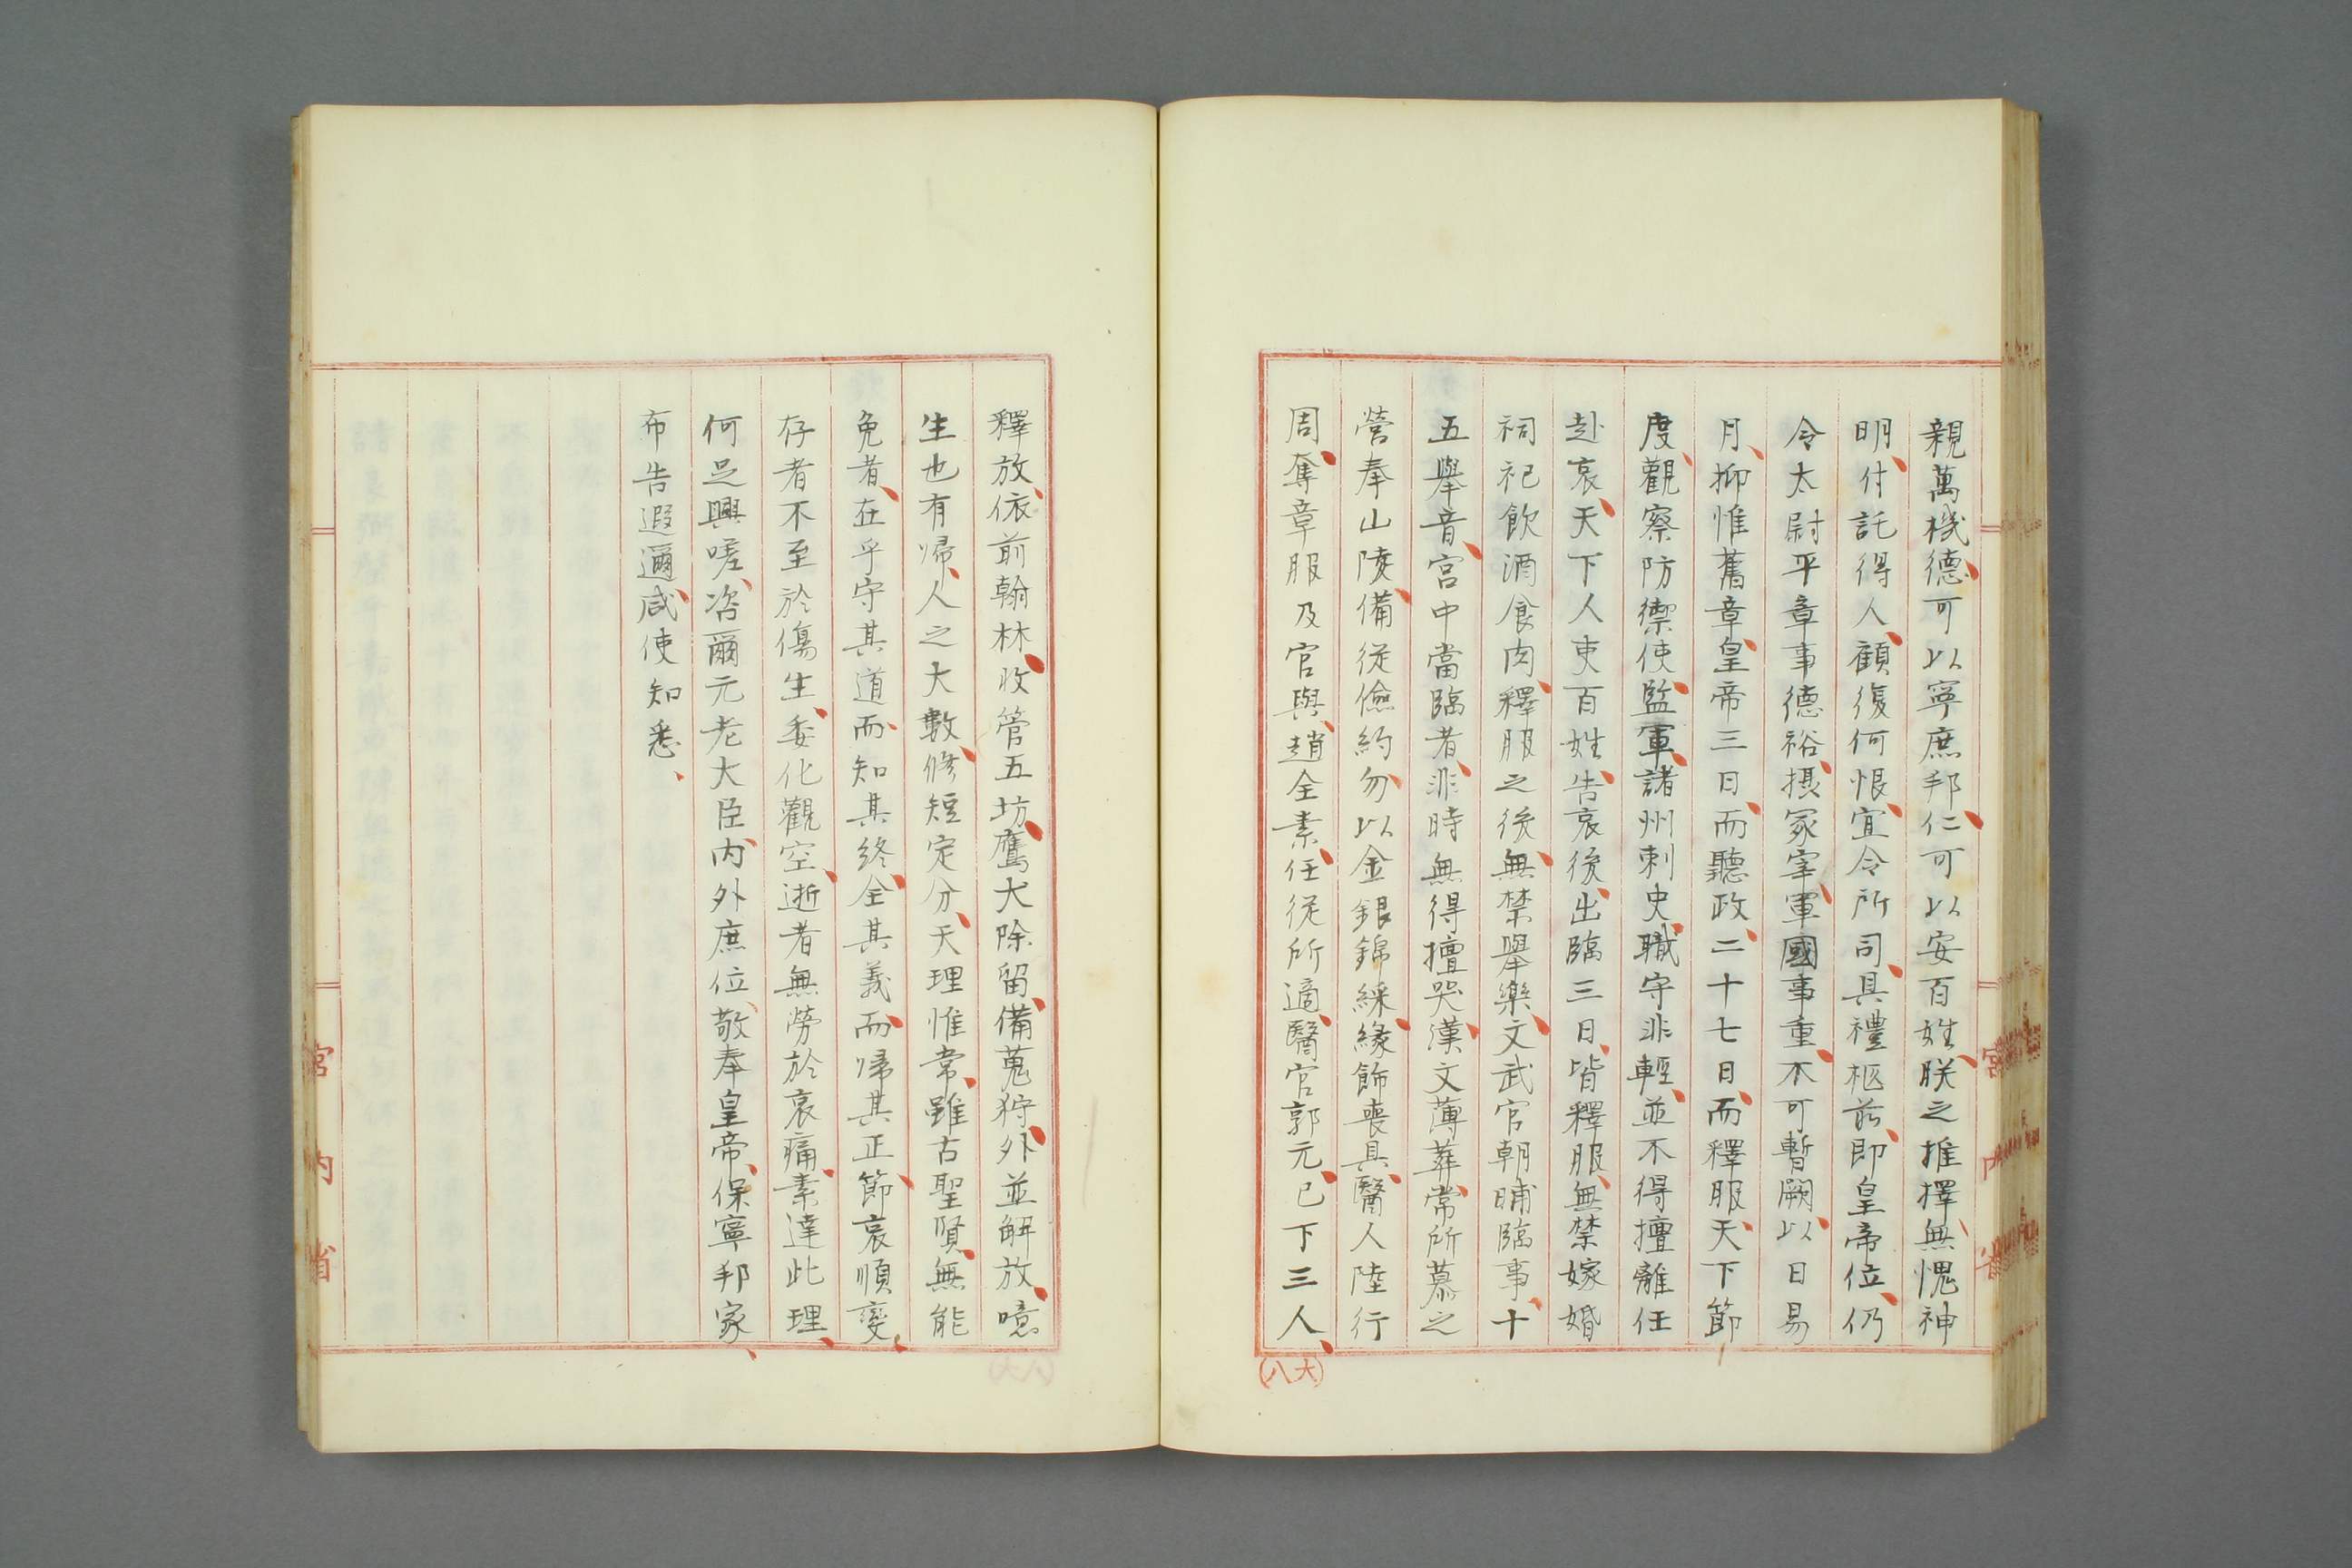 親萬機、德可以寧庶邦、仁可以安百姓、朕之推擇、無愧神
明、付託得人、顧復何恨、宜令所司、具禮柩前、即皇帝位、仍
令太尉平章事德裕、摂冢宰、軍國事重、不可暫闕、以日易
月、抑惟舊章、皇帝三日、而聽政、二十七日、而釋服、天下節
度、觀察防禦使、監軍、諸州刺史、職守非輕、並不得擅離任
赴哀、天下人吏百姓、告哀後、出臨三日、皆釋服、無禁嫁婚
祠祀飲酒食肉、釋服之後、無禁舉樂、文武官朝晡臨事、十
五舉音、宮中當臨者、非時無得擅哭、漢文薄葬、常所慕之
營奉山陵、備從儉約、勿以金銀錦綵、緣飾喪具、醫人陸行
周、奪章服及官與、趙全素、任從所適、醫官郭元、已下三人、
(八大)
釋放、依前翰林、收管五坊、鷹犬除留、備蒐狩、外並解放、噫
生也有歸、人之大數、修短定分、天理惟常、雖古聖賢、無能
免者、在乎守其道而、知其終、全其義、而歸其正、節哀順變、
存者不至於傷生、委化觀空、逝者無勞於哀痛、素達此理、
何足興嗟、咨爾元老大臣、內外庶位、敬奉皇帝、保寧邦家、
布告遐邇、咸使知悉、
宮内省